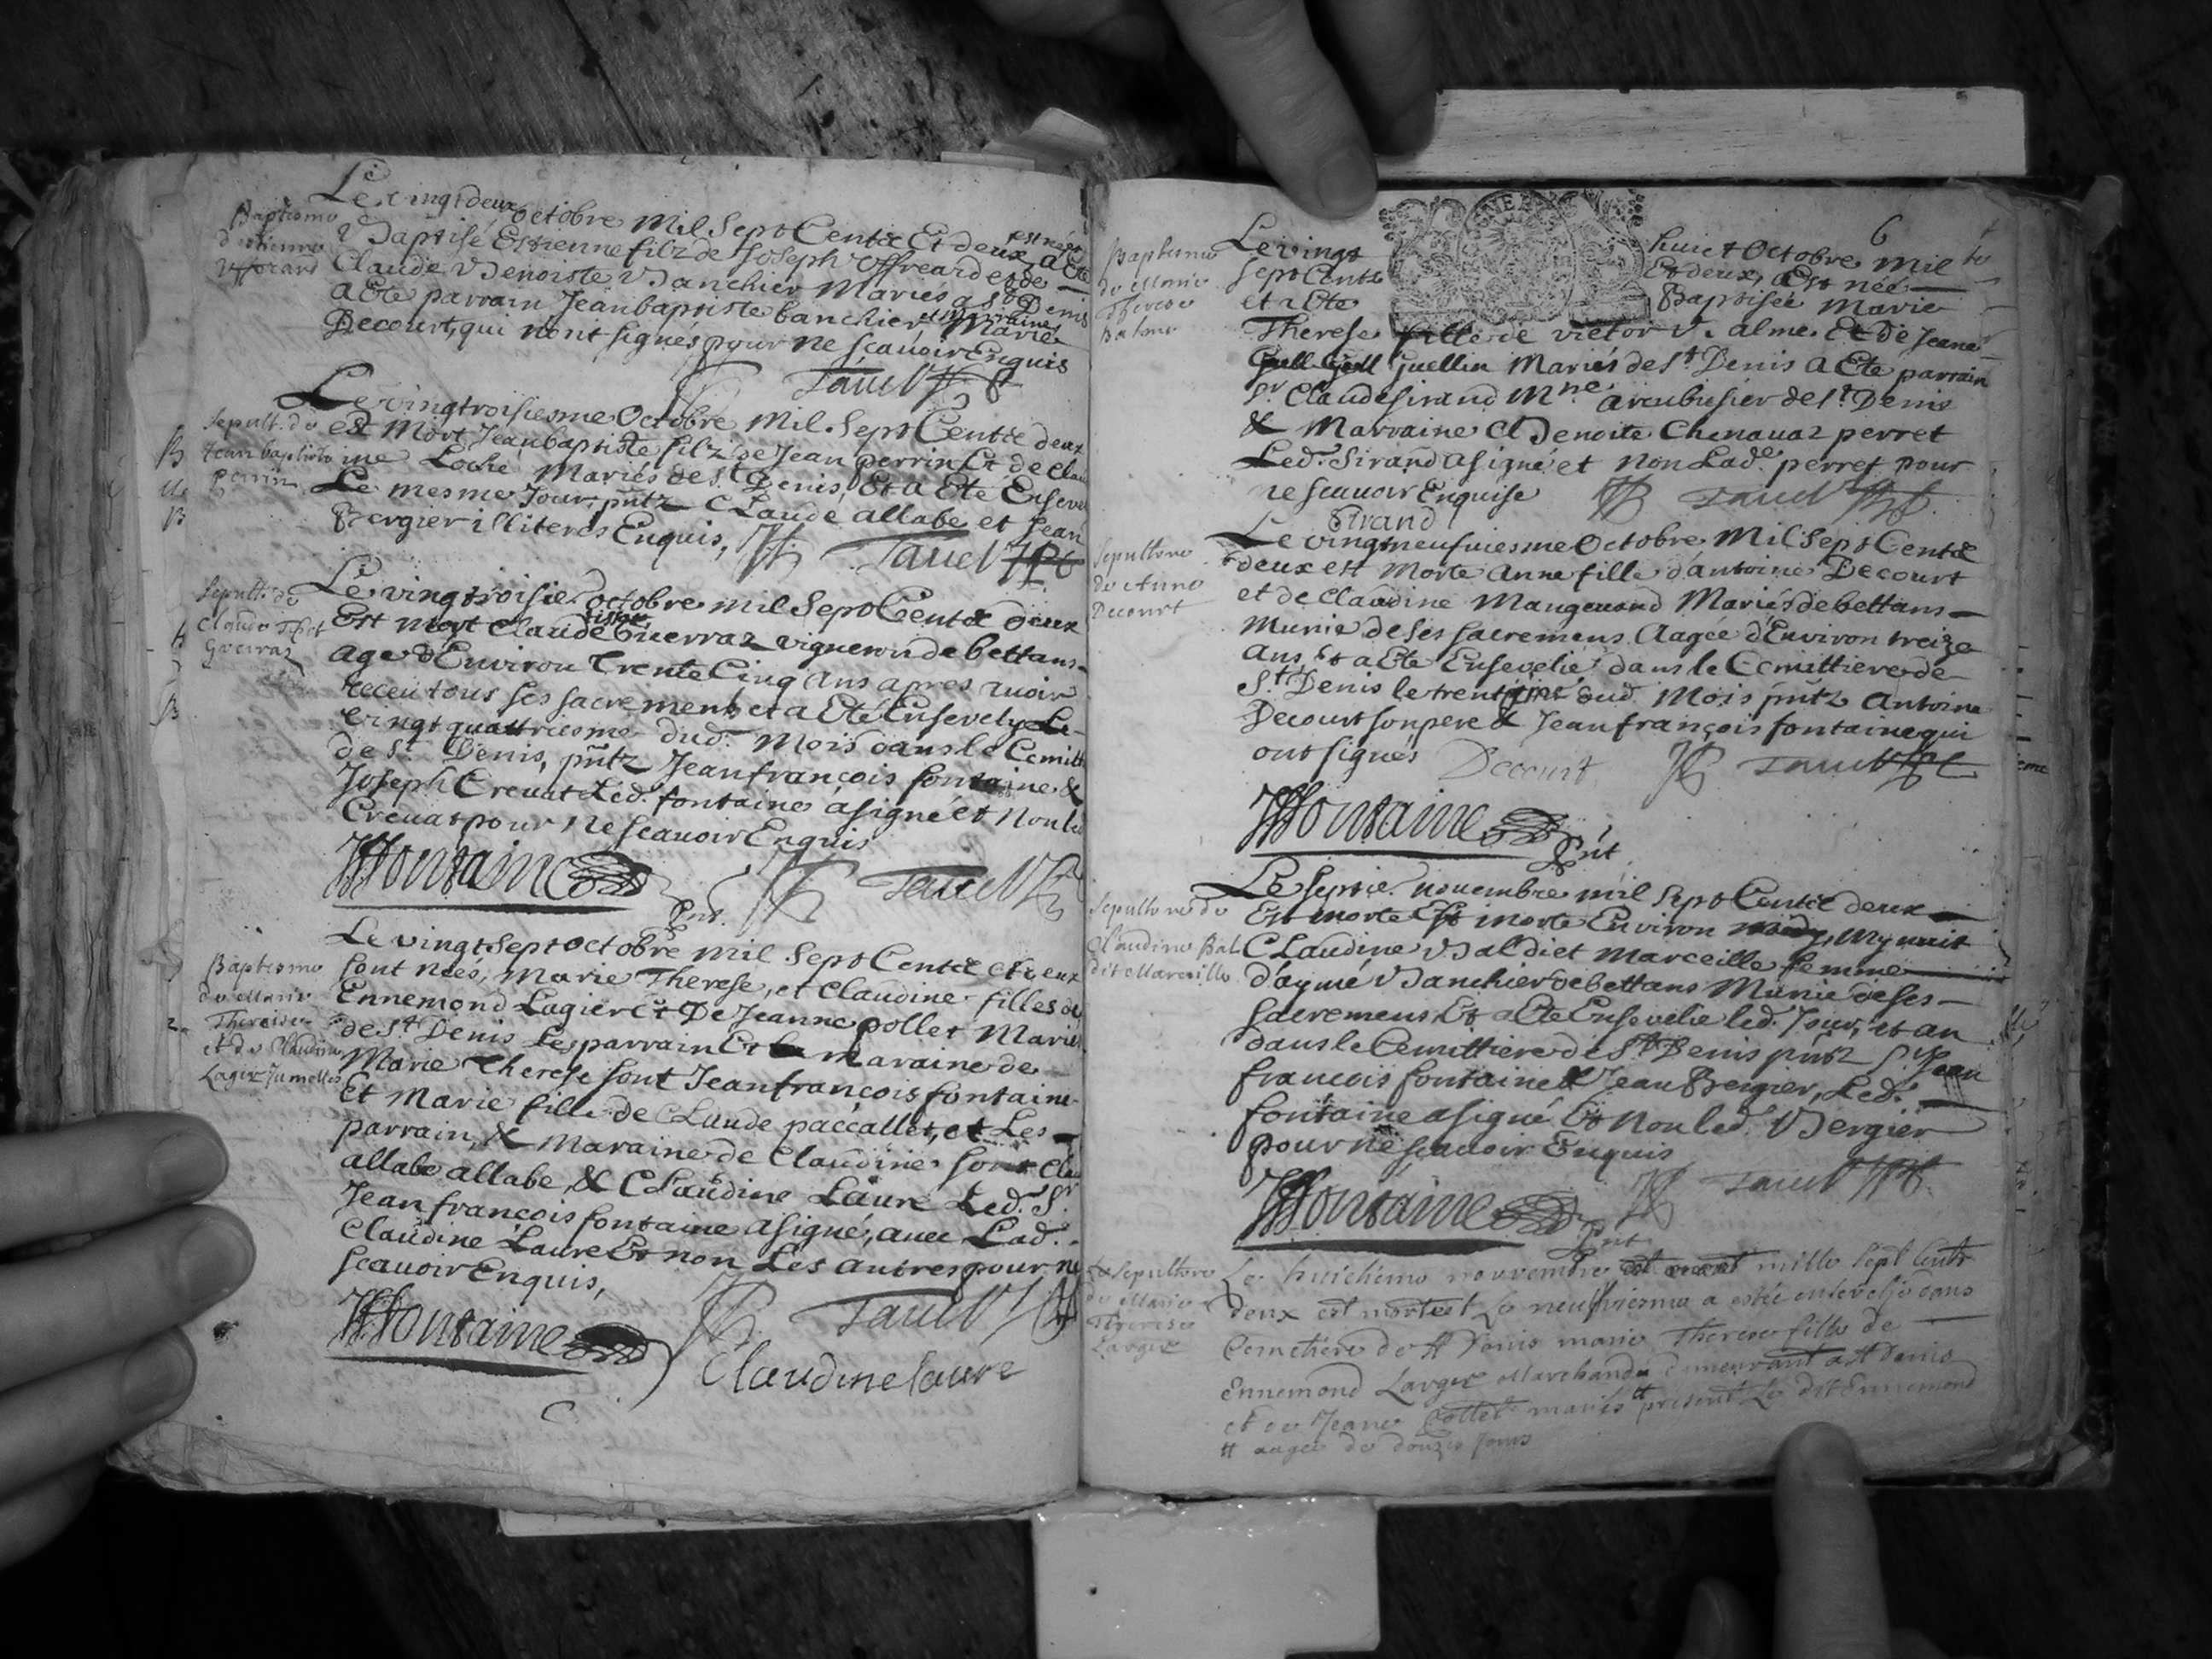 Le vingt deux octobre mil sept Centz Et deux est né et a Eté
Baptisé Estienne filz de Joseph Uffreard et de
Claude Benoiste Banchier Mariés a St Denis
a Eté parrain Jean baptiste banchier, et Marraine Marie
Decourt, qui n'ont signés pour ne scavoir Enquis
Tavel
Baptisme
d'estienne
Le vingtroisiesme Octobre Mil Sept Centz deux
est Mort Jean baptiste filz de Jean perrin Et de Clau
me Loche Mariés de St Denis, Et a Eté Enseve
Le mesme Jour, pntz Claude allabe et Jean
Bergier illiterés Enquis,
Tavel
Sepult. de
Jean baptiste
perrin
Le vingtroisie. octobre mil Sept Centz deux
Est mort Claude Guerraz vigneron de bettans
age d'Environ Trente Cinq ans apres avoir
receu tous ses sacrements et a Eté Ensevely Le
vingt quattriesme dud. Mois dans le Cemitt
de St Denis, pntz Jean françois fontaine &
Joseph Crevat Led. fontaine a signé et Non le
Crevat pour Ne scavoir Enquis
Fontaine pnt. Tavel
Sepult. de
Claude
Guerraz
Le vingt Sept octobre mil Sept Centz et deux
sont neés, Marie Therese, et Claudine filles de
Ennemond Lagier Et De Jeanne pollet Mariés
de St Denis Les parrain Et maraine de
Marie Therese sont Jean françois fontaine
Et Marie fille de Claude paccallet, et Les
parrain, & Maraine de Claudine sont Clau
allabe allabe, & Claudine Laure Led. Sr
Jean françois fontaine a signé, avec Lad.
Claudine Laure Et non Les autres pour ne
scavoir Enquis,
Fontaine Tavel
Claudine laure
Baptesme
de Marie
Therese
et de Claudine
Lagier Jumelles
6
Le vingt huict Octobre Mil
Sept Centz Et deux, Est née
et a Eté Baptisée Marie
Therese fille de victor Balme. Et De Jeane
Guellin Mariés de St Denis a Eté parrain
Sr Claude Sirand Mne arcubusier de St Denis
& Marraine Cl Benoite Chenavaz perret
Led. Sirand a signé et Non Lade perret pour
ne scavoir Enquise Tavel
Sirand
Baptisme
de Marie
Therese
Balme
Le vingtneufviesme Octobre Mil Sept Centz
deux est Morte Anne fille d'antoine Decourt
et de Claudine Mangevand Mariés de bettans
Munie de ses sacremens Aagée d'Environ treize
ans Et a Ete Ensevelie dans le Cemittiere de
St Denis le trentième dud. Mois pntz Antoine
Decourt son pere & Jean françois fontaine qui
ont signés Decourt Tavel
Fontaine pnt
Sepulture
de Anne
Decourt
Le septie. novembre mil Sept Centz deux
Est morte Est morte Environ midy, mynuit
Claudine Bal diet Marceille femme
d'aymé Banchier de bettans Munie de ses
sacremens Et a Ete Ensevelie led. Jour, et an
dans le Cemittiere de St Denis pntz Sr Jean
francois fontaine & Jean Bergier, Led.
fontaine a signé Et Non led. Bergier
pour ne scavoir Enquis
Fontaine pnt Tavel
Sepulture de
Claudine Bal
dit Marceille
Le huictiéme novembre mille sept Cents
deux est morte et Le neufviesme a estée ensevelie dans
Cemetiére de St Denis marie Therese fille de
Ennemond Largier Marchand demeurant a St Denis
et de Jeane Pollet mariés present Le dit Ennemond
aagée de douze Jours
La Sepulture
de Marie
Therese
Largie